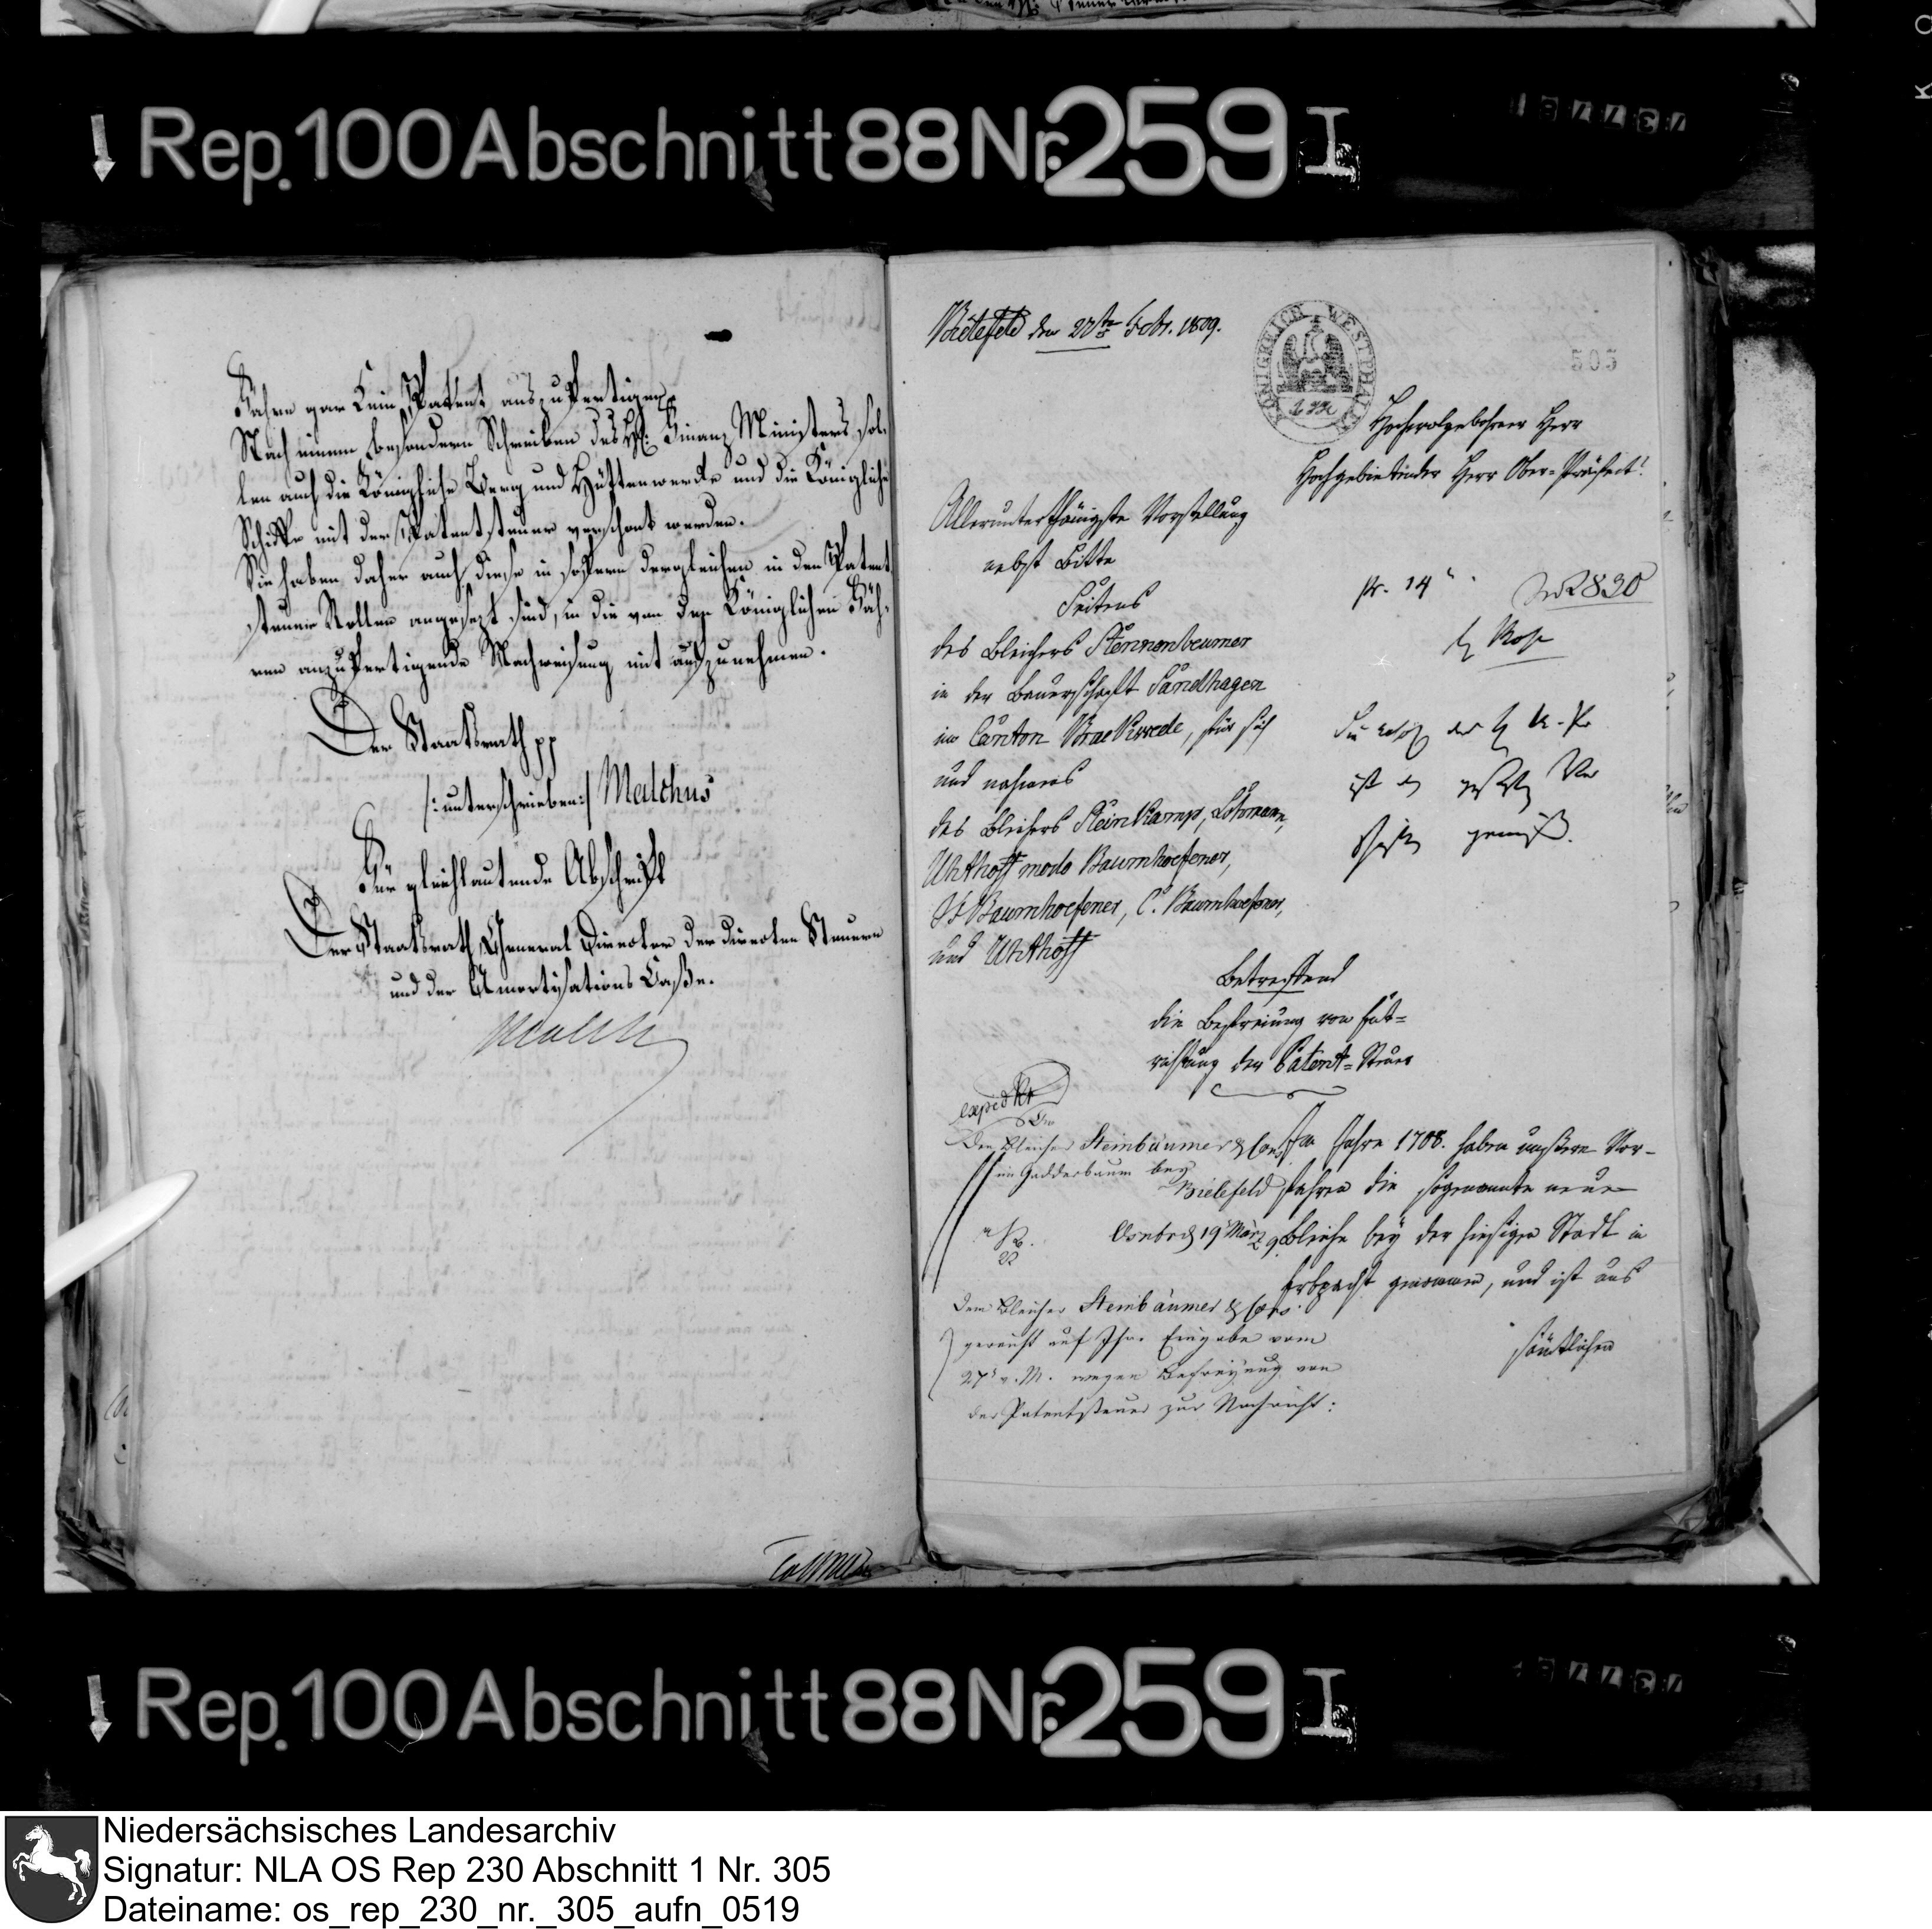 Rep. 100 Abschnitt 88 Nr. 259 I
Fähre gar kein Patent auszufertigen.
Nach einem besondern Schreiben des H: Finanz Ministers sol-
len auch die Königliche Berg und Hüttenwerke und die Königliche
Schiffe mit der Patentsteuer verschont werden.
Sie haben daher auch diese in sofern dergleichen in den Patent
steuer Rollen angesezt sind, in die von den Königlichen Fäh-
ren anzufertigende Nachweisung mit aufzunehmen.
Der Staatsrath pp
/: unterschrieben :/ Malchus
Für gleichlautende Abschrift
Der Staatsrath General Director der directen Steuern
und der Amortisations Casse.
Malchus
Bielefeld den 27ten Febr. 1809.
KÖNIGREICH WESTPHALEN
505
Hochwolgebohrner Herr
Hochgebietender Herr Ober-Präfect!
Allerunterthänigste Vorstellung
nebst Bitte
Seitens
des Bleichers
in der Bauerschaft Sandhagen
im Canton Brackwede, für sich
und nahmens
des Bleichers Steinkamp,
Uhthoff modo Baumhoefener,
Baumhoefener, C. Baumhoefener,
und Uhthoff
pr. 14
2830
ist
gemäß.
Betreffend
die Befreiung von Ent-
richtung der Patent-Steuer
expedirt
Den Bleicher Steinbäumer & Cons.
im Gadderbaum bey
Bielefeld
Osnabr. d 19 März 9
Im Jahre 1708. haben unsere Vor-
fahren die sogenannte neue
Bleiche bey der hiesigen Stadt in
Erbpacht genommen, und ist uns
sämtlichen
Dem Bleicher Steinbäumer & Cons.
gereicht auf Ihre Eingabe vom
27t v. M. wegen Befreiyung von
der Patentsteuer zur Nachricht:
Rep. 100 Abschnitt 88 Nr. 259 I
Niedersächsisches Landesarchiv
Signatur: NLA OS Rep 230 Abschnitt 1 Nr. 305
Dateiname: os_rep_230_nr._305_aufn_0519